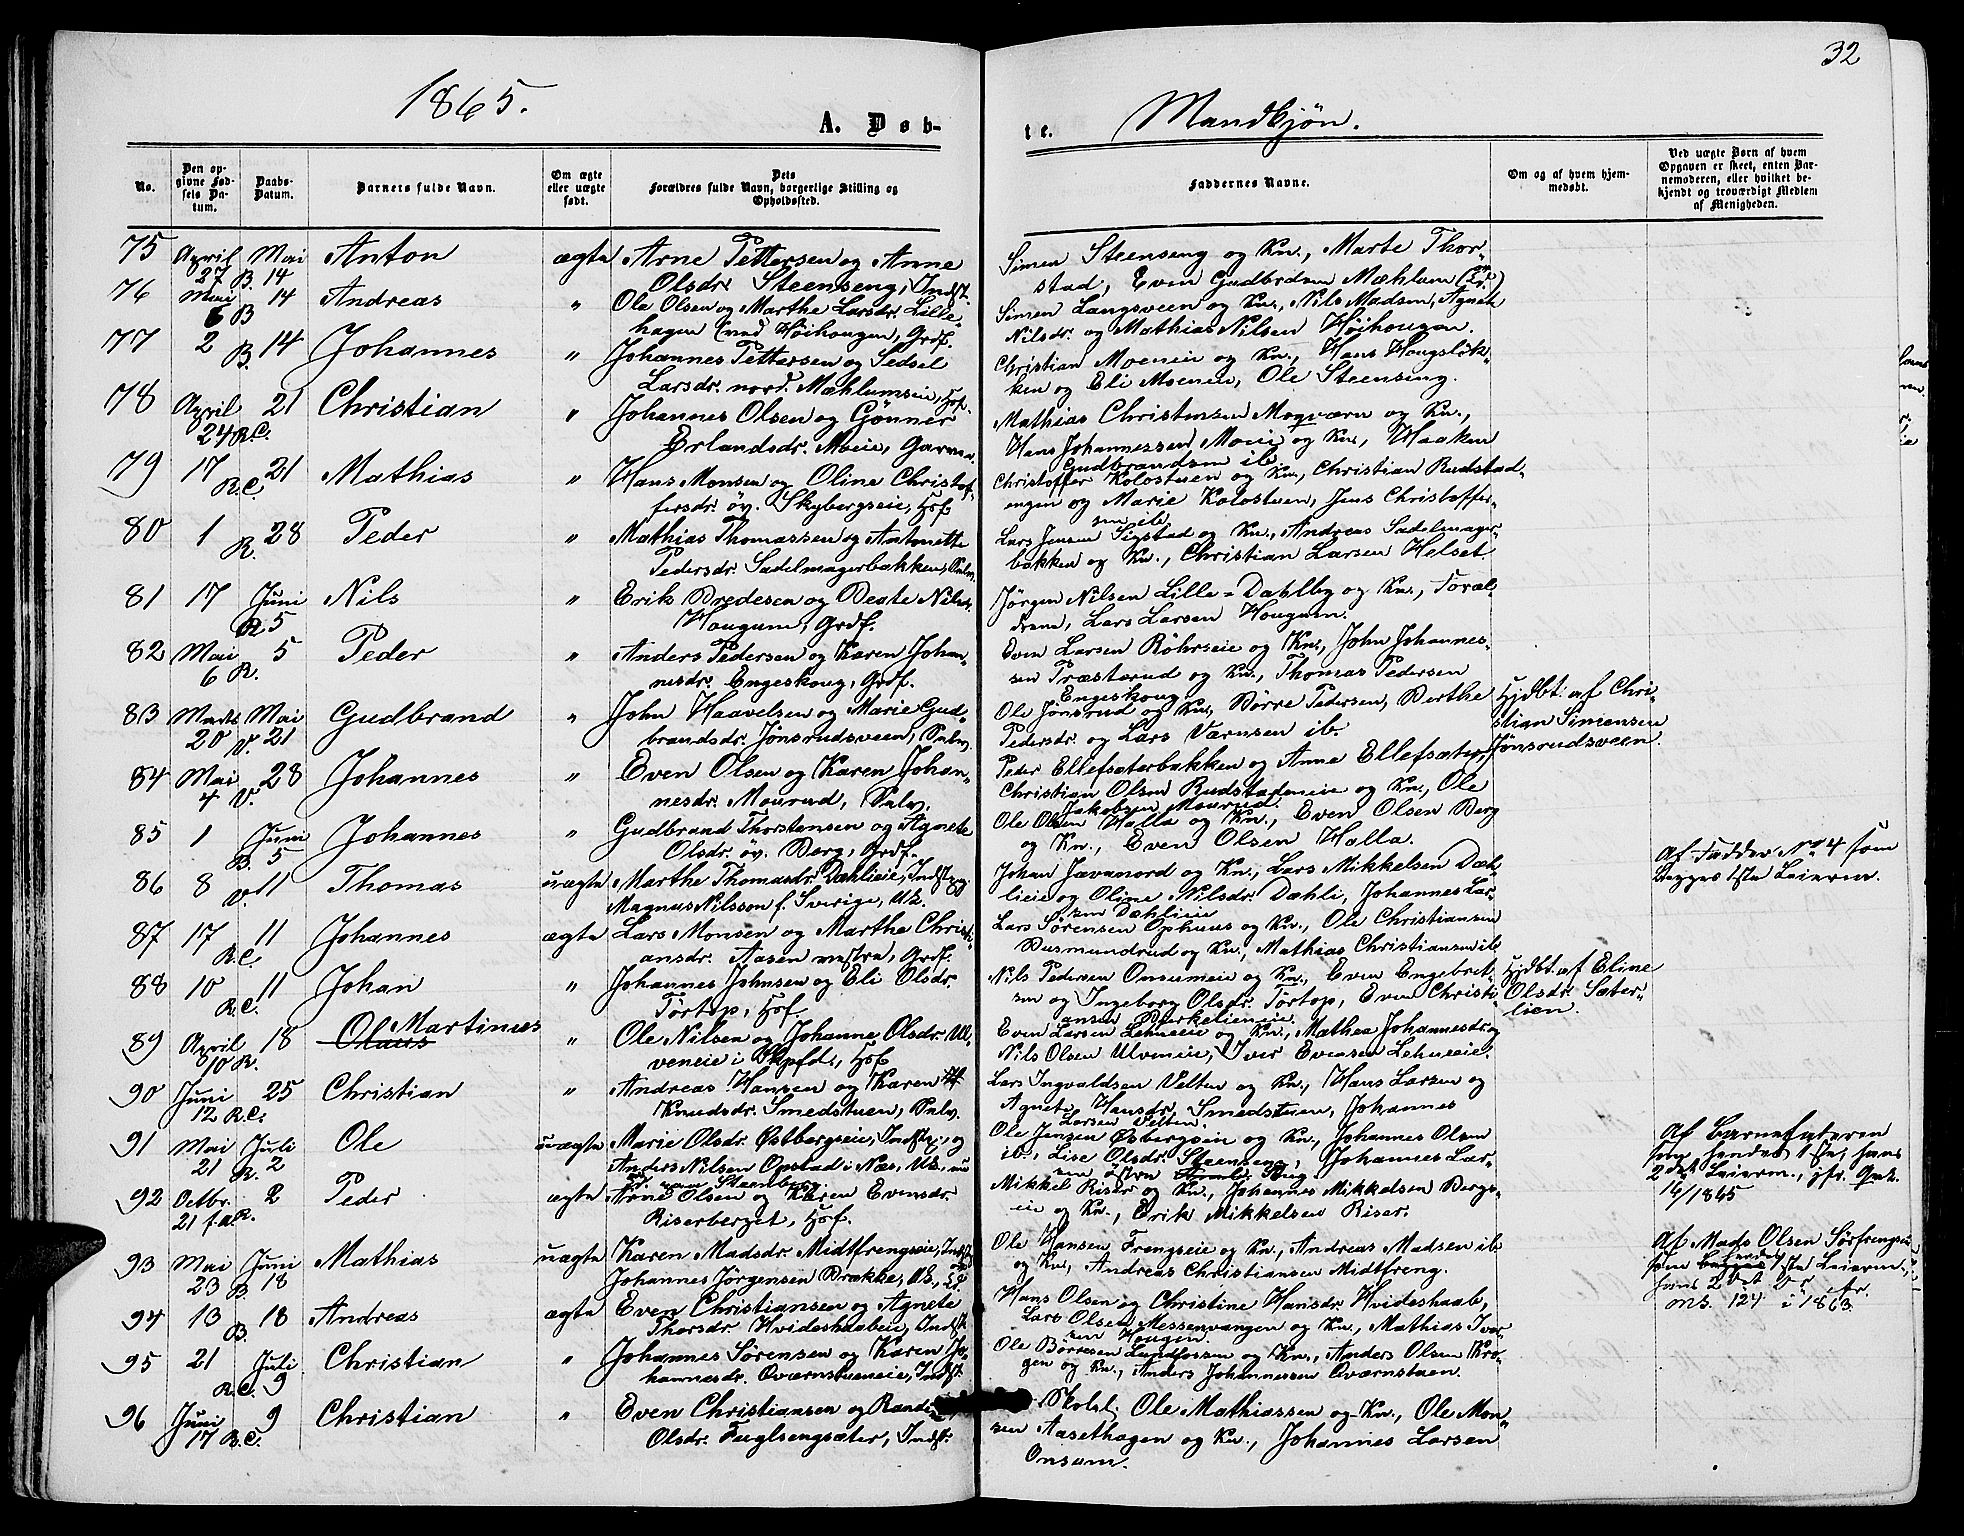 32
1865.
A. Døb-
te.
Mandkjøn.
No.
Den opgivne Fødsels Datum.
Daabs-Datum.
Barnets fulde Navn.
Om ægte eller uægte født.
Dets Forældres fulde Navn, borgerlige Stilling og Opholdssted.
Faddernes Navne.
Om og af hvem hjemmedøbt.
Ved uægte Børn af hvem Opgaven er skeet, enten Barnemoderen, eller hvilket bekjendt og troværdigt Medlem af Menigheden.
75 April 27 B. Mai 14 Anton ægte Arne Pettersen og Anne
Olsdr. Steenseng, Indst.
Simen Steenseng og Kn., Marte Thor-
stad, Even Gudbrdsen Mæhlum
76 Mai 6 B 14 Andreas " Ole Olsen og Marthe Larsdr. Lille-
hagen (ved Høihougen, Grdf.
Simen Langsveen og Kn., Nils Madsen, Agnete
Nilsdr. og Mathias Nilsen Høihougen.
77 2 B. 14 Johannes " Johannes Pettersen og Sedsel
Larsdr. nord. Mæhlumseie, Hof.
Christian Moeneie og Kn., Hans Hougsløk-
ken og Eli Moeneie, Ole Steenseng.
78 April 24 R.C. 21 Christian " Johannes Olsen og Gønner
Erlandsdr. Moeie, Garver.
Mathias Christensen Moqværn og Kn.,
Hans Johannessen Moeie og Kn., Haaken
Gudbrandsen ib.
79 17 R.C. 21 Mathias " Hans Monsen og Oline Christof-
fersdr. øv. Skybergseie, Hof
Christoffer Kolostuen og Kn., Christian Rudstad-
engen og Marie Kolostuen, Jens Christoffer-
sen ib.
80 1 R. 28 Peder " Mathias Thomassen og Antonette
Pedersdr. Sadelmagerbakken, Inlv.
Lars Jensen Sigstad og Kn., Andreas Sadelmager-
bakken og Kn., Christian Larsen Helset.
81 17 Juni R. 5 Nils " Erik Bredesen og Beate Nilsdr.
Hougum, Grdf.
Jørgen Nilsen Lille-Dahlby og Kn., Foræl-
drene, Lars Larsen Hougum.
82 Mai 6 R. 5 Peder " Anders Pedersen og Karen Johan-
nesdr. Engeskoug, Grdf.
Even Larsen Røhrseie og Kn., John Johannes-
sen Træsterud og Kn., Thomas Pedersen
Engeskoug
83 Marts 20 V. Mai 21 Gudbrand " John Haavelsen og Marie Gud-
brandsdr. Jønsrudsveen, Inlv.
Ole Jønsrud og Kn., Børre Pedersen, Berthe
Pedersdr. og Lars Larsen ib.
Hjdbt. af Chri-
stian Simensen
Jønsrudsveen.
84 Mai 4 V. 28 Johannes " Even Olsen og Karen Johan-
nesdr. Mourud, Inlv.
Peder Ellefsæterbakken og Anne Ellefsæter,
Christian Olsen Rudstadeneie og Kn., Ole
Jakobsen Mourud.
85 1 Juni B. 5 Johannes " Gudbrand Thorstensen og Agnete
Olsdr. øv. Berg, Grdf.
Ole Olsen Halla og Kn., Even Olsen Berg
og Kn., Even Olsen Halla.
86 8 V. 11 Thomas uægte Marthe Thomasdr. Dæhlieie, Indst. og
Magnus Nilsson f. Sverige, Uk.
Johan Javanord og Kn., Lars Mikkelsen Dæh-
lieie og Oline Nilsdr. Dæhli, Johannes Lar-
sen Dæhlieie
Af Fadder No. 4 som
begges 1ste Leierm.
87 17 R.C. 11 Johannes ægte Lars Monsen og Marthe Christi-
ansdr. Aasen vestre, Grdf.
Lars Sørensen Ophuus og Kn., Ole Christiansen
Dusmundrud og Kn., Mathias Christiansen ib
88 10 R.C. 11 Johan " Johannes Johnsen og Eli Olsdr.
Tørtop, Hof
Nils Pedersen Onsumeie og Kn., Even Engebret-
sen og Ingeborg Olsdr. Tørtop, Even Christi-
ansen Birkelieneie
Hjdbt. af Eline
Olsdr. Sæter-
lien.
89 April 8/10 R. 18 Ole Martinus " Ole Nilsen og Johanne Olsdr. Ul-
veneie i Skpfd., Hof
Even Larsen Lehneeie og Kn., Mathea Johannesdr. og
Nils Olsen Ulveneie, Iver Evensen Lehneeie.
90 Juni 12 R.C. 25 Christian " Andreas Hansen og Karen
Knudsdr. Smedstuen, Inlv.
Lars Ingvaldsen Velten og Kn., Hans Larsen og
Agnete Hansdr. Smedstuen, Johannes
Larsen Velten.
91 Mai 21 R. Juli 2 Ole uægte Marie Olsdr. Østbergseie, Indst., og
Anders Nilsen Opstad i Næs, Uk., nu
Steenberg.
Ole Jensen Østbergseie og Kn., Johannes Olsen
ib., Lise Olsdr. Steenseng, Johannes Lar-
sen østre Haug
Af Barnefaderen
som hendes 1ste, hans
2det Leierm., jfr. Gøk.
16/1865
92 Octbr. 21 f.a. R. 2 Peder ægte Arne Olsen og Karen Evensdr.
Riserberget, Hof.
Mikkel Riser og Kn., Johannes Mikkelsen Bergs-
eie og Kn., Erik Mikkelsen Riser.
93 Mai 23 B. Juni 18 Mathias uægte Karen Madsdr. Midtfrengseie, Indst. og
Johannes Jørgensen Brække, Uk.,
Ole Hansen Frengseie og Kn., Andreas Madsen ib
og Kn., Andreas Christiansen Midtfreng.
Af Mads Olsen Sørfrengseie
som hendes 1ste Leierm.,
hans 2det
ms. 124 i 1863.
94 13 B. 18 Andreas ægte Even Christiansen og Agnete
Thorsdr. Hvideshaabeie, Indst.
Hans Olsen og Christine Hansdr. Hvideshaab,
Lars Olsen Messenvangen og Kn., Mathias Iver-
sen Hougen.
95 21 R.C. Juli 9 Christian " Johannes Sørensen og Karen Jo-
hannesdr. Qværnstueneie, Indst.
Ole Børresen Lundfossen og Kn., Anders Olsen Kro-
gen og Kn., Anders Johannessen Qværnstuen.
96 Juni 17 R.C. 9 Christian " Even Christiansen og Randi
Olsdr. Fuglsengsæter, Indst.
Skoll. Ole Mathiassen og Kn., Ole Mon-
sen Aasethagen og Kn., Johannes Larsen
Onsum.